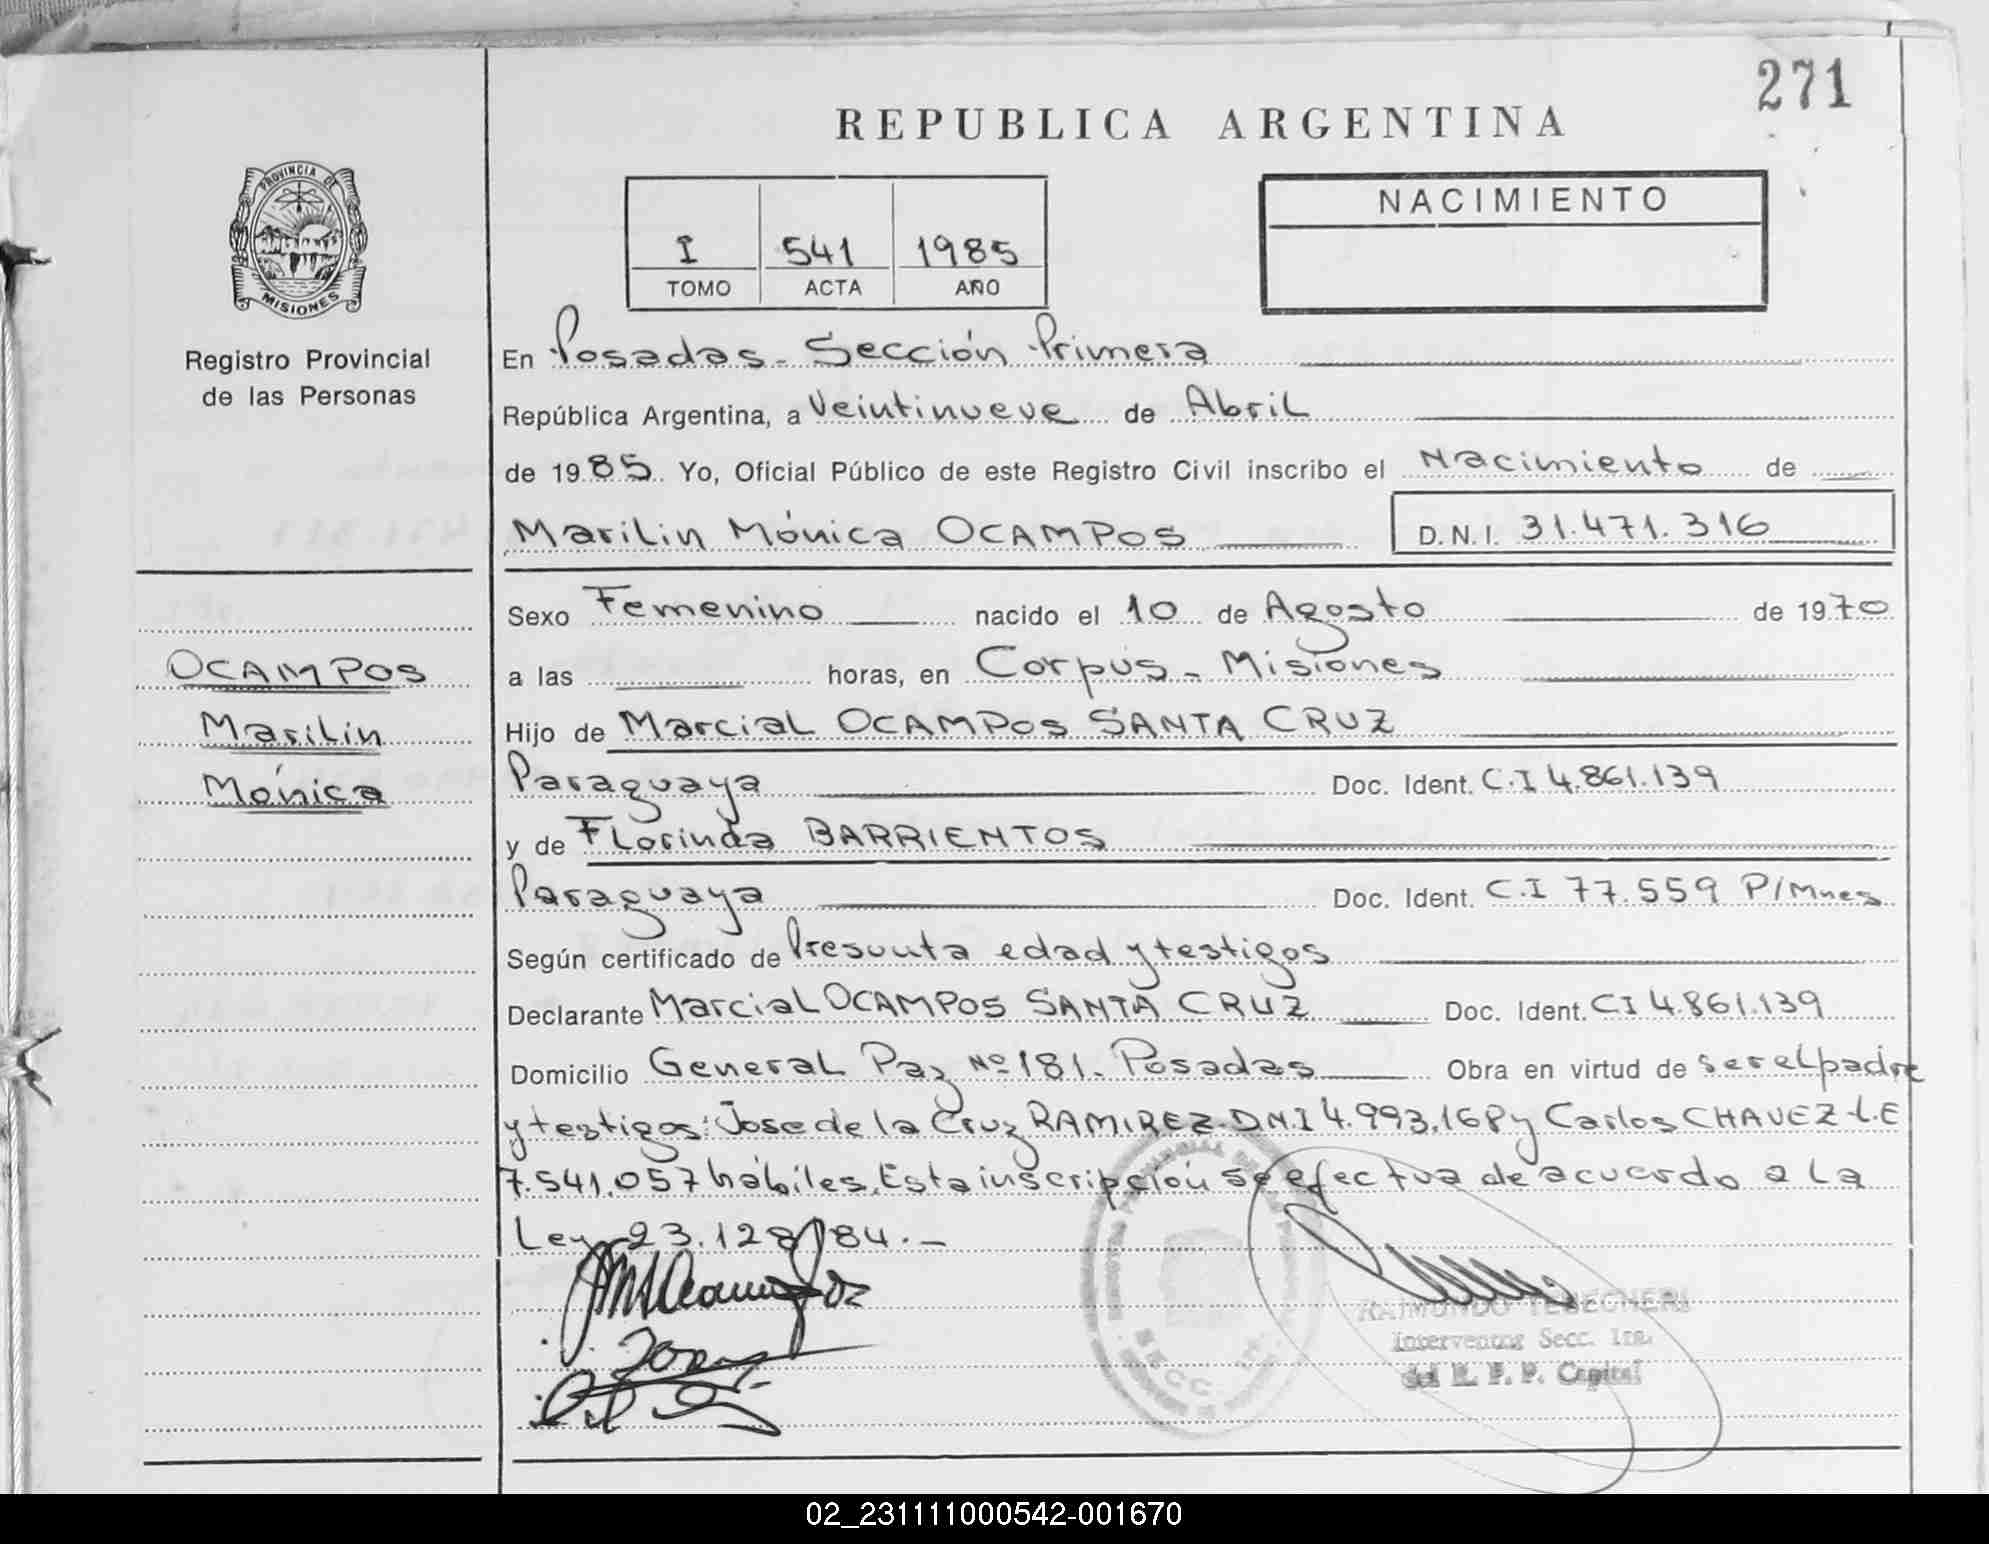 271
REPUBLICA ARGENTINA
PROVINCIA DE
MISIONES
Registro Provincial
de las Personas
I 541 1985
TOMO ACTA AÑO
NACIMIENTO
En Posadas - Sección Primera
República Argentina, a Veintinueve de Abril
de 1985 Yo, Oficial Público de este Registro Civil inscribo el Nacimiento de
Marilin Mónica OCAMPOS D.N.I. 31.471.316
Sexo Femenino nacido el 10 de Agosto de 1970
OCAMPOS
Marilin
Mónica
a las horas, en Corpus - Misiones
Hijo de Marcial OCAMPOS SANTA CRUZ
Paraguaya Doc. Ident. C.I 4.861.139
y de Florinda BARRIENTOS
Paraguaya Doc. Ident. C.I 77.559 P/Mnes
Según certificado de Presunta edad y testigos
Declarante Marcial OCAMPOS SANTA CRUZ Doc. Ident. CI 4.861.139
Domicilio General Paz Nº 181. Posadas Obra en virtud de ser el padre
y testigos: Jose de la Cruz RAMIREZ D.N.I 4.993.168 y Carlos CHAVEZ L.E
7.541.057 hábiles. Esta inscripción se efectua de acuerdo a la
Ley 23.128/84.-
RAIMUNDO TEBECHERI
Interventor Secc. 1ra.
del R. P. P. Capital
02_231111000542-001670